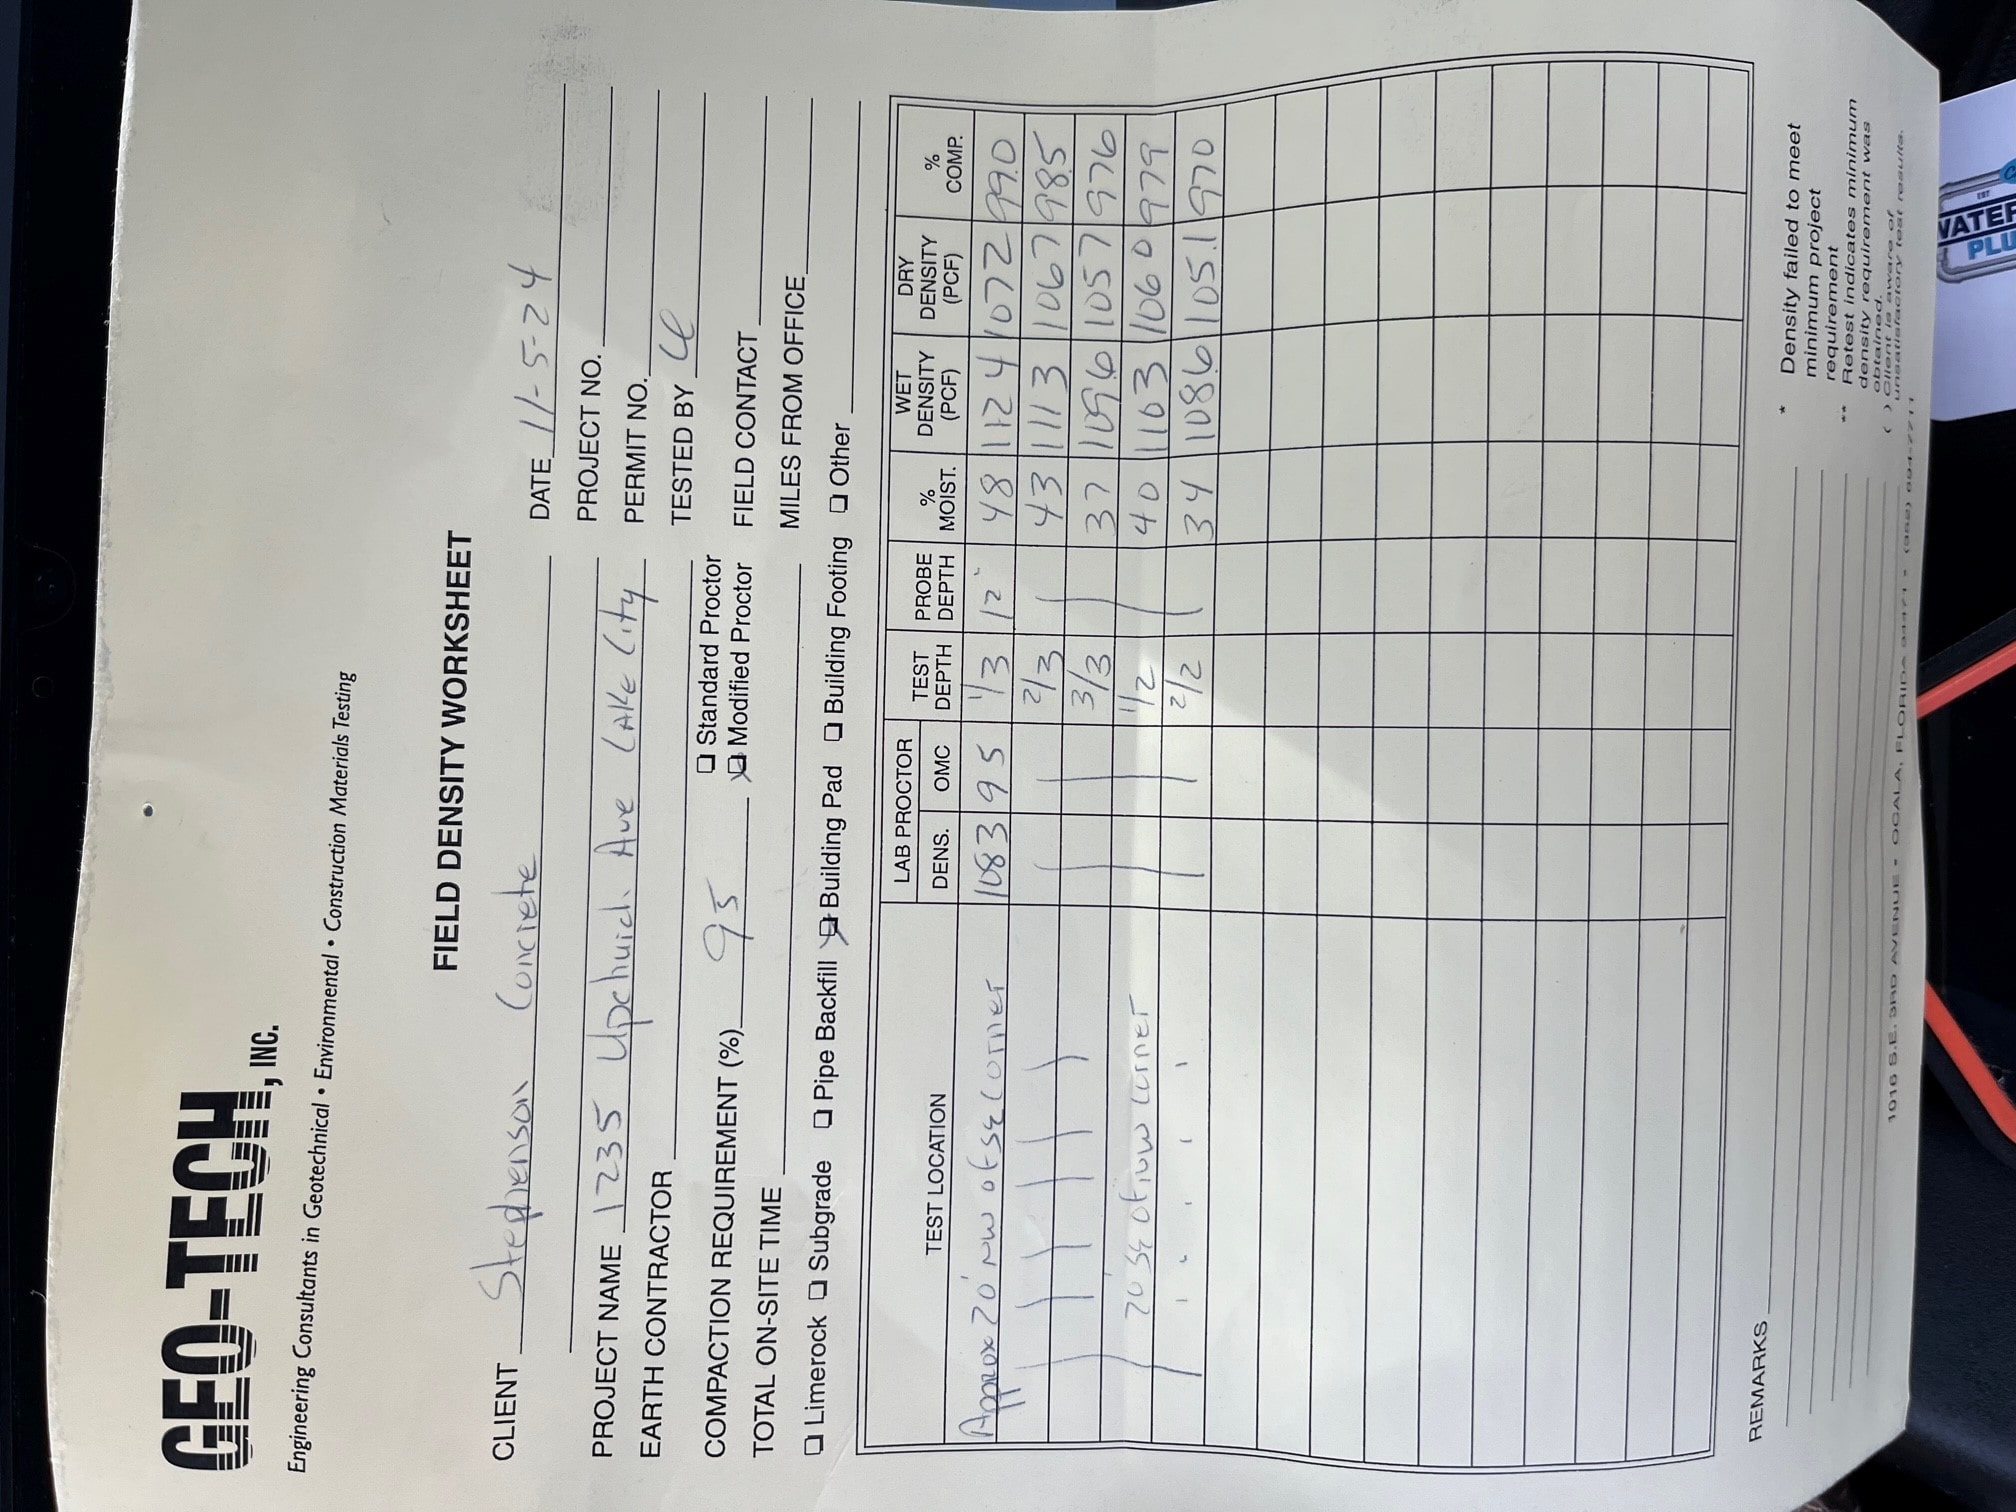 GEO-TECH, INC.
Engineering Consultants in Geotechnical • Environmental • Construction Materials Testing
FIELD DENSITY WORKSHEET
CLIENT Stephenson Concrete DATE 11-5-24
PROJECT NO.
PROJECT NAME 1235 Upchurch Ave Lake City PERMIT NO.
EARTH CONTRACTOR TESTED BY
COMPACTION REQUIREMENT (%) 95 ❑ Standard Proctor
☒ Modified Proctor FIELD CONTACT
TOTAL ON-SITE TIME MILES FROM OFFICE
❑ Limerock ❑ Subgrade ❑ Pipe Backfill ☒ Building Pad ❑ Building Footing ❑ Other
TEST LOCATION LAB PROCTOR DENS. OMC TEST DEPTH PROBE DEPTH % MOIST. WET DENSITY (PCF) DRY DENSITY (PCF) % COMP.
Approx 20' NW of SE Corner 1083 95 1/3 12" 48 1124 1072 99.0
2/3 43 1113 1067 98.5
3/3 37 1096 1057 976
20' SE of NW Corner 1/2 40 1103 1060 979
2/2 34 108.6 105.1 970
REMARKS
* Density failed to meet
minimum project
requirement
** Retest indicates minimum
density requirement was
obtained.
( ) Client is aware of
unsatisfactory test results.
1016 S.E. 3RD AVENUE • OCALA, FLORIDA 34471 • (352) 694-7711
WATER